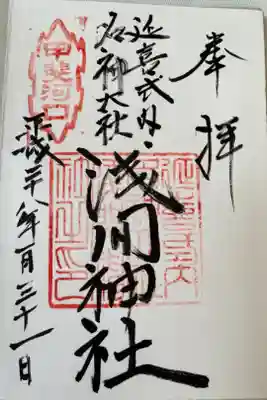 奉拝
延喜式内
名神大社
浅間神社
甲斐河口
平成二十八年一月三十一日